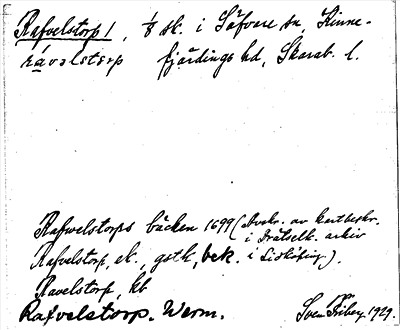 Rafvelstorp 1, 1/8 sk. i Säfvare sn, Kinne-
rávalstorp fjärdings hd, Skarab. l.
Rafwelstorps bäcken 1699 (Avskr. av kartbeskr.
i Drätselk. arkiv
Rafvelstorp, ek., geth., bek. i Lidköping).
Ravelstorp, kb
Rafvelstorp. Werm.
Sven Friberg. 1929.